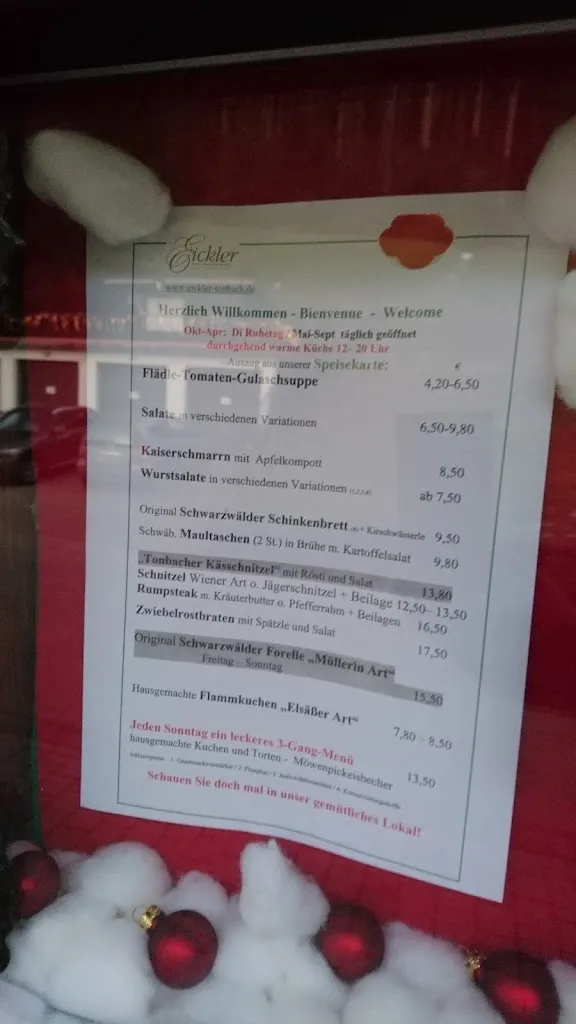 Eickler
www.eickler-tonbach.de
Herzlich Willkommen - Bienvenue - Welcome
Okt-Apr: Di Ruhetag / Mai-Sept täglich geöffnet
durchgehend warme Küche 12- 20 Uhr
Auszug aus unserer Speisekarte: €
Flädle-Tomaten-Gulaschsuppe 4,20-6,50
Salate in verschiedenen Variationen 6,50-9,80
Kaiserschmarrn mit Apfelkompott 8,50
Wurstsalate in verschiedenen Variationen ab 7,50
Original Schwarzwälder Schinkenbrett + Kirschwässerle 9,50
Schwäb. Maultaschen (2 St.) in Brühe m. Kartoffelsalat 9,80
„Tonbacher Kässchnitzel" mit Rösti und Salat 13,80
Schnitzel Wiener Art o. Jägerschnitzel + Beilage 12,50– 13,50
Rumpsteak m. Kräuterbutter o. Pfefferrahm + Beilagen 16,50
Zwiebelrostbraten mit Spätzle und Salat 17,50
Original Schwarzwälder Forelle „Müllerin Art"
Freitag – Sonntag 15,50
Hausgemachte Flammkuchen „Elsäßer Art" 7,80 – 8,50
Jeden Sonntag ein leckeres 3-Gang-Menü 13,50
hausgemachte Kuchen und Torten - Möwenpickeisbecher
Schauen Sie doch mal in unser gemütliches Lokal!